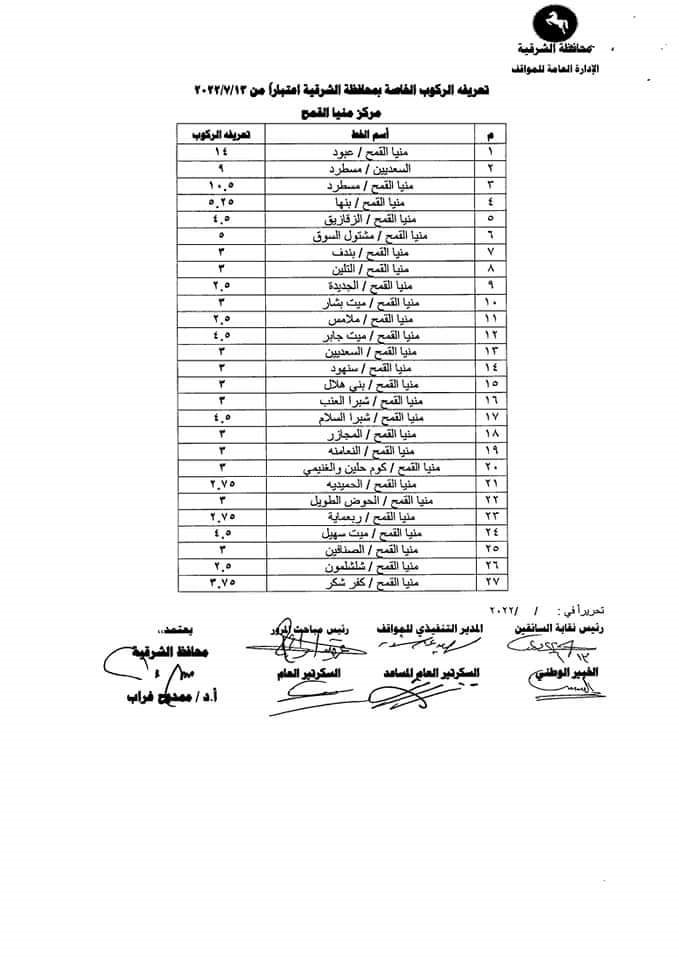 محافظة الشرقية
الإدارة العامة للمواقف
تعريفه الركوب الخاصة بمحافظة الشرقية اعتباراً من ٢٠٢٢/٧/١٣
مركز منيا القمح
م أسم الخط تعريفه الركوب
١ منيا القمح / عبود ١٤
٢ السعديين / مسطرد ٩
٣ منيا القمح / مسطرد ١٠,٥
٤ منيا القمح / بنها ٥,٢٥
٥ منيا القمح / الزقازيق ٤,٥
٦ منيا القمح / مشتول السوق ٥
٧ منيا القمح / بندف ٣
٨ منيا القمح / التلين ٣
٩ منيا القمح / الجديدة ٢,٥
١٠ منيا القمح / ميت بشار ٣
١١ منيا القمح / ملامس ٢,٥
١٢ منيا القمح / ميت جابر ٤,٥
١٣ منيا القمح / السعديين ٣
١٤ منيا القمح / سنهود ٣
١٥ منيا القمح / بني هلال ٣
١٦ منيا القمح / شبرا العنب ٣
١٧ منيا القمح / شبرا السلام ٤,٥
١٨ منيا القمح / المجازر ٣
١٩ منيا القمح / النعامنه ٣
٢٠ منيا القمح / كوم حلين والغنيمي ٣
٢١ منيا القمح / الحميديه ٢,٧٥
٢٢ منيا القمح / الحوض الطويل ٣
٢٣ منيا القمح / ربعماية ٢,٧٥
٢٤ منيا القمح / ميت سهيل ٤,٥
٢٥ منيا القمح / الصنافين ٣
٢٦ منيا القمح / شلشلمون ٢,٥
٢٧ منيا القمح / كفر شكر ٣,٧٥
تحريراً في : / / ٢٠٢٢
رئيس نقابة السائقين المدير التنفيذي للمواقف رئيس مباحث المرور يعتمد،،
محافظ الشرقية
الخبير الوطني السكرتير العام المساعد السكرتير العام
أ.د / ممدوح غراب